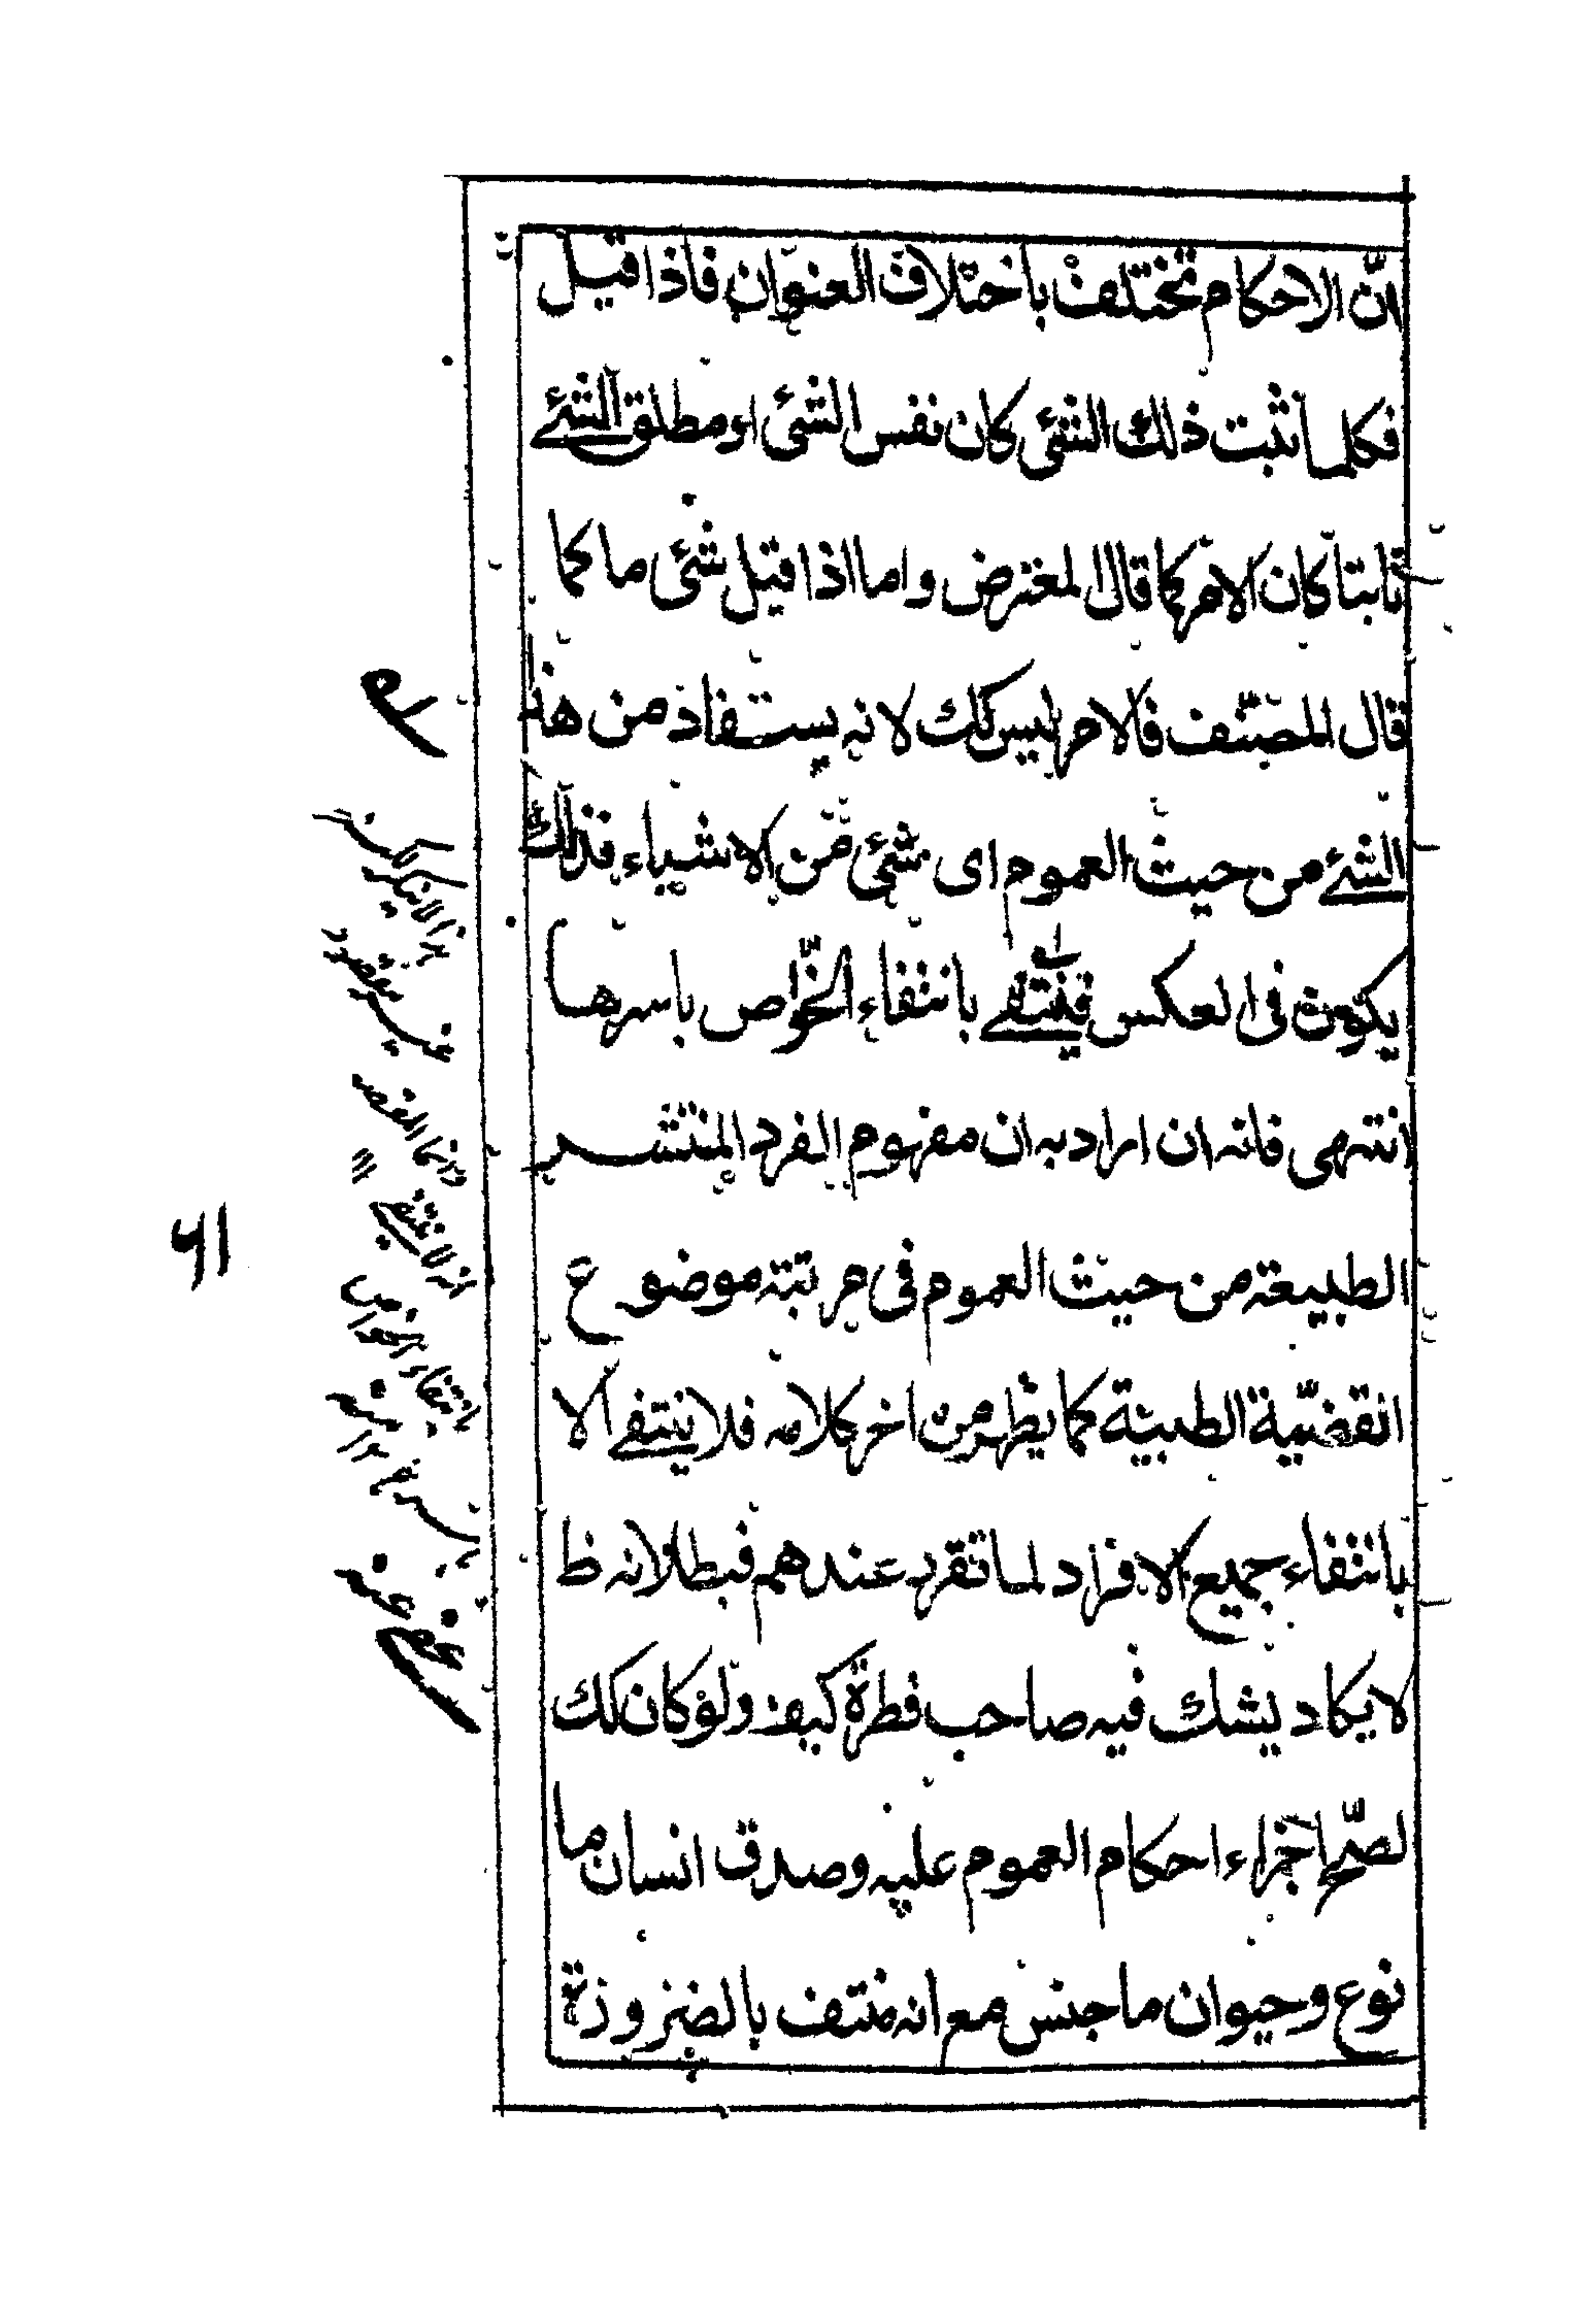 انّ الاحكام تختلف باختلاف العنوان فاذا قيل
فكلما ثبت ذلك الشئ كان نفس الشئ او مطلق الشئ
ثابتا كان الامر كما قال المعترض واما اذا قيل شئ ما كما
قال المصنّف فالامر ليس كك لانه يستفاد من هذا
الشئ من حيث العموم اى شئ من الاشياء فذلك
يكون فى العكس فينتفى بانتفاء الخوّاص باسرها
انتهى فانه ان اراد به ان مفهوم الفرد المنتشر
الطبيعة من حيث العموم فى مرتبة موضوع
القضيّة الطبيية كما يظهر من اخر كلامه فلا ينتفى الا
بانتفاء جميع الافراد لما تقرر عندهم فبطلانه ظ
لا يكاد يشك فيه صاحب فطرة كيف ولو كان كك
لصحّ اجراء احكام العموم عليه وصدق انسان ما
نوع وحيوان ما جنس مع انه منتف بالضرورة
٦١